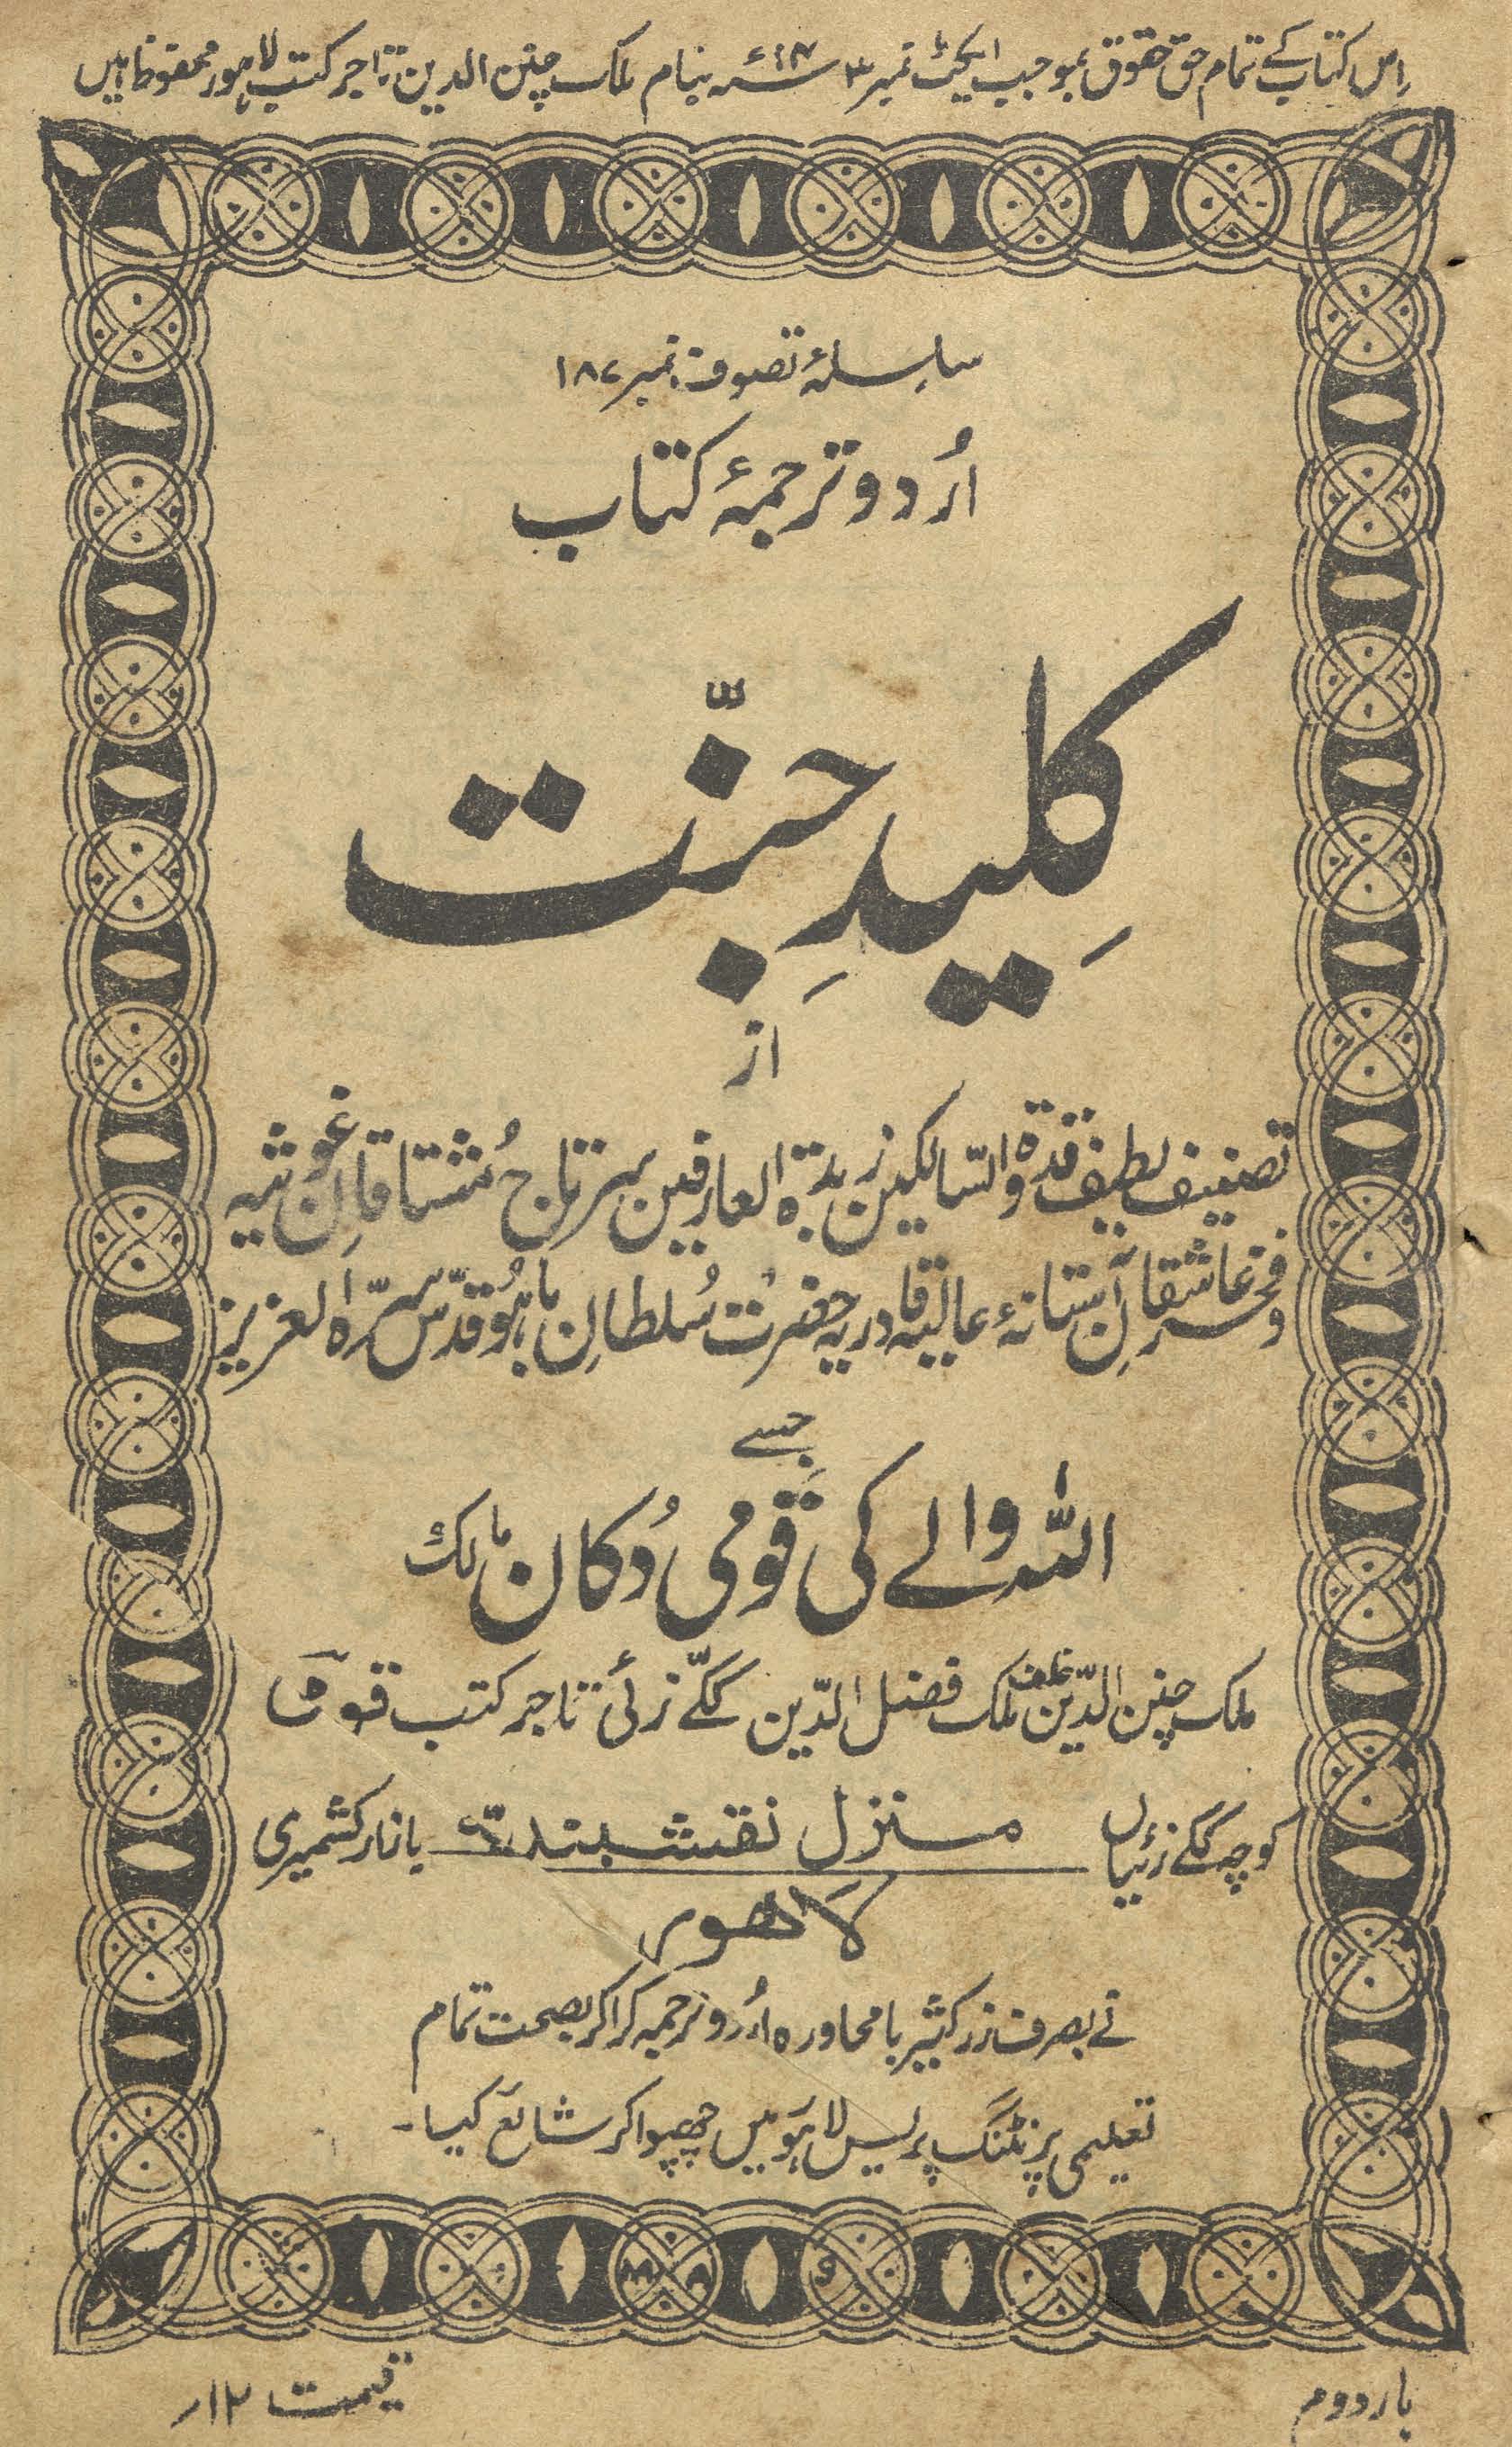 اِس کتاب کے تمام حق حقوق بموجب ایکٹ نمبر ۳ ۱۹۱۴ء بنام ملک چنن الدین تاجر کتب لاہور محفوظ ہیں
سلسلۂ تصوف نمبر ۱۸۷
اُردو ترجمۂ کتاب
کلیدِ جنّت
از
تصنیف لطیف قدوۃ السّالکین زبدۃ العارفین سرتاج مُشتاقانِ غوثیہ
و فخر عاشقانِ آستانۂ عالیہ قادریہ حضرت سُلطان باہُو قدّس سرّہ العزیز
جسے
اللہ والے کی قومی دُکان مالک
ملک چنن الدّین خلف ملک فضل الدّین ککّے زئی تاجر کتب قومی
کوچہ ککے زئیاں منزل نقشبندیّہ بازار کشمیری
لاھور
نے بصرف زر کثیر بامحاورہ اُردو ترجمہ کرا کر بصحت تمام
تعلیمی پرنٹنگ پریس لاہور میں چھپوا کر شائع کیا۔
بار دوم
قیمت ۱۲؍